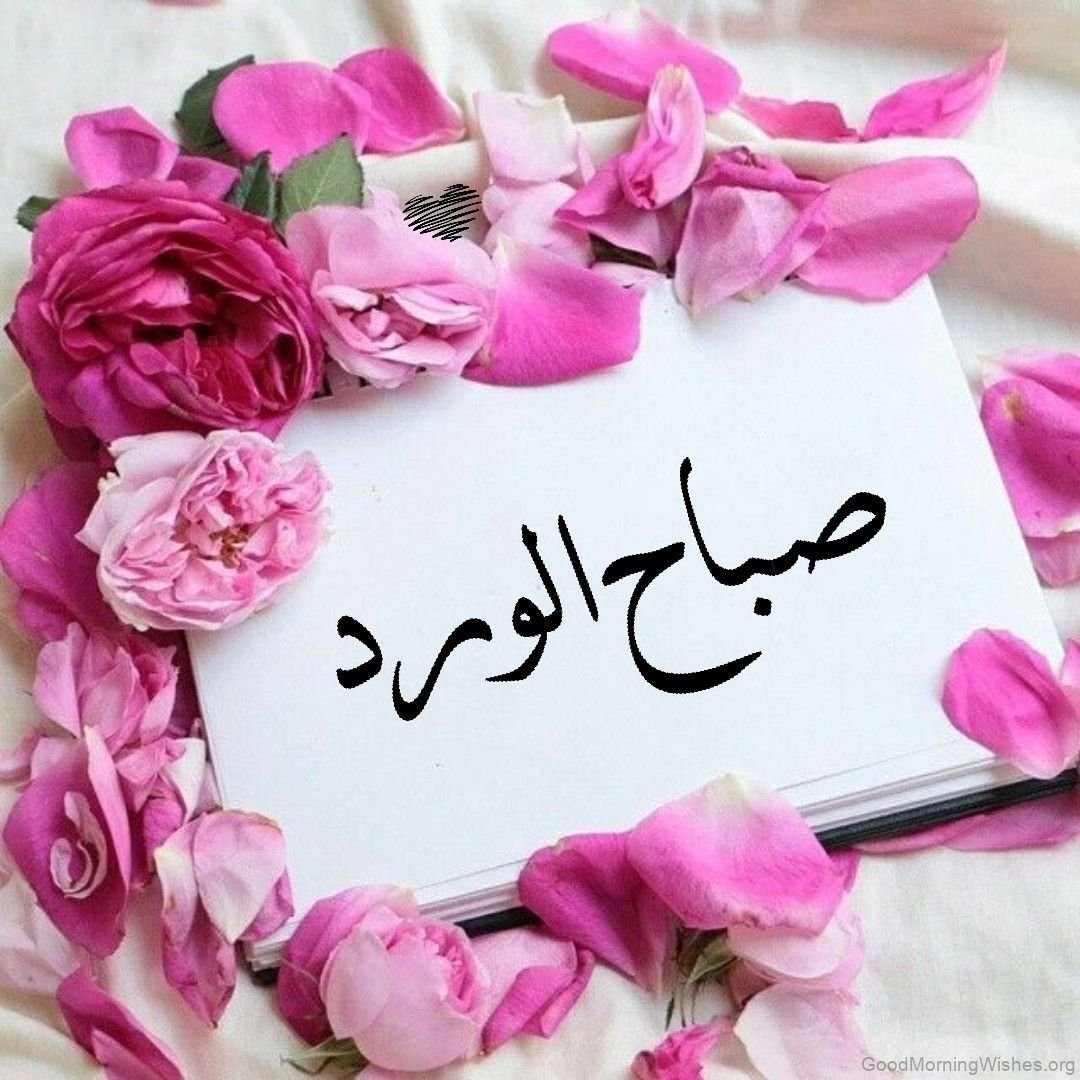 صباح الورد
GoodMorningWishes.org